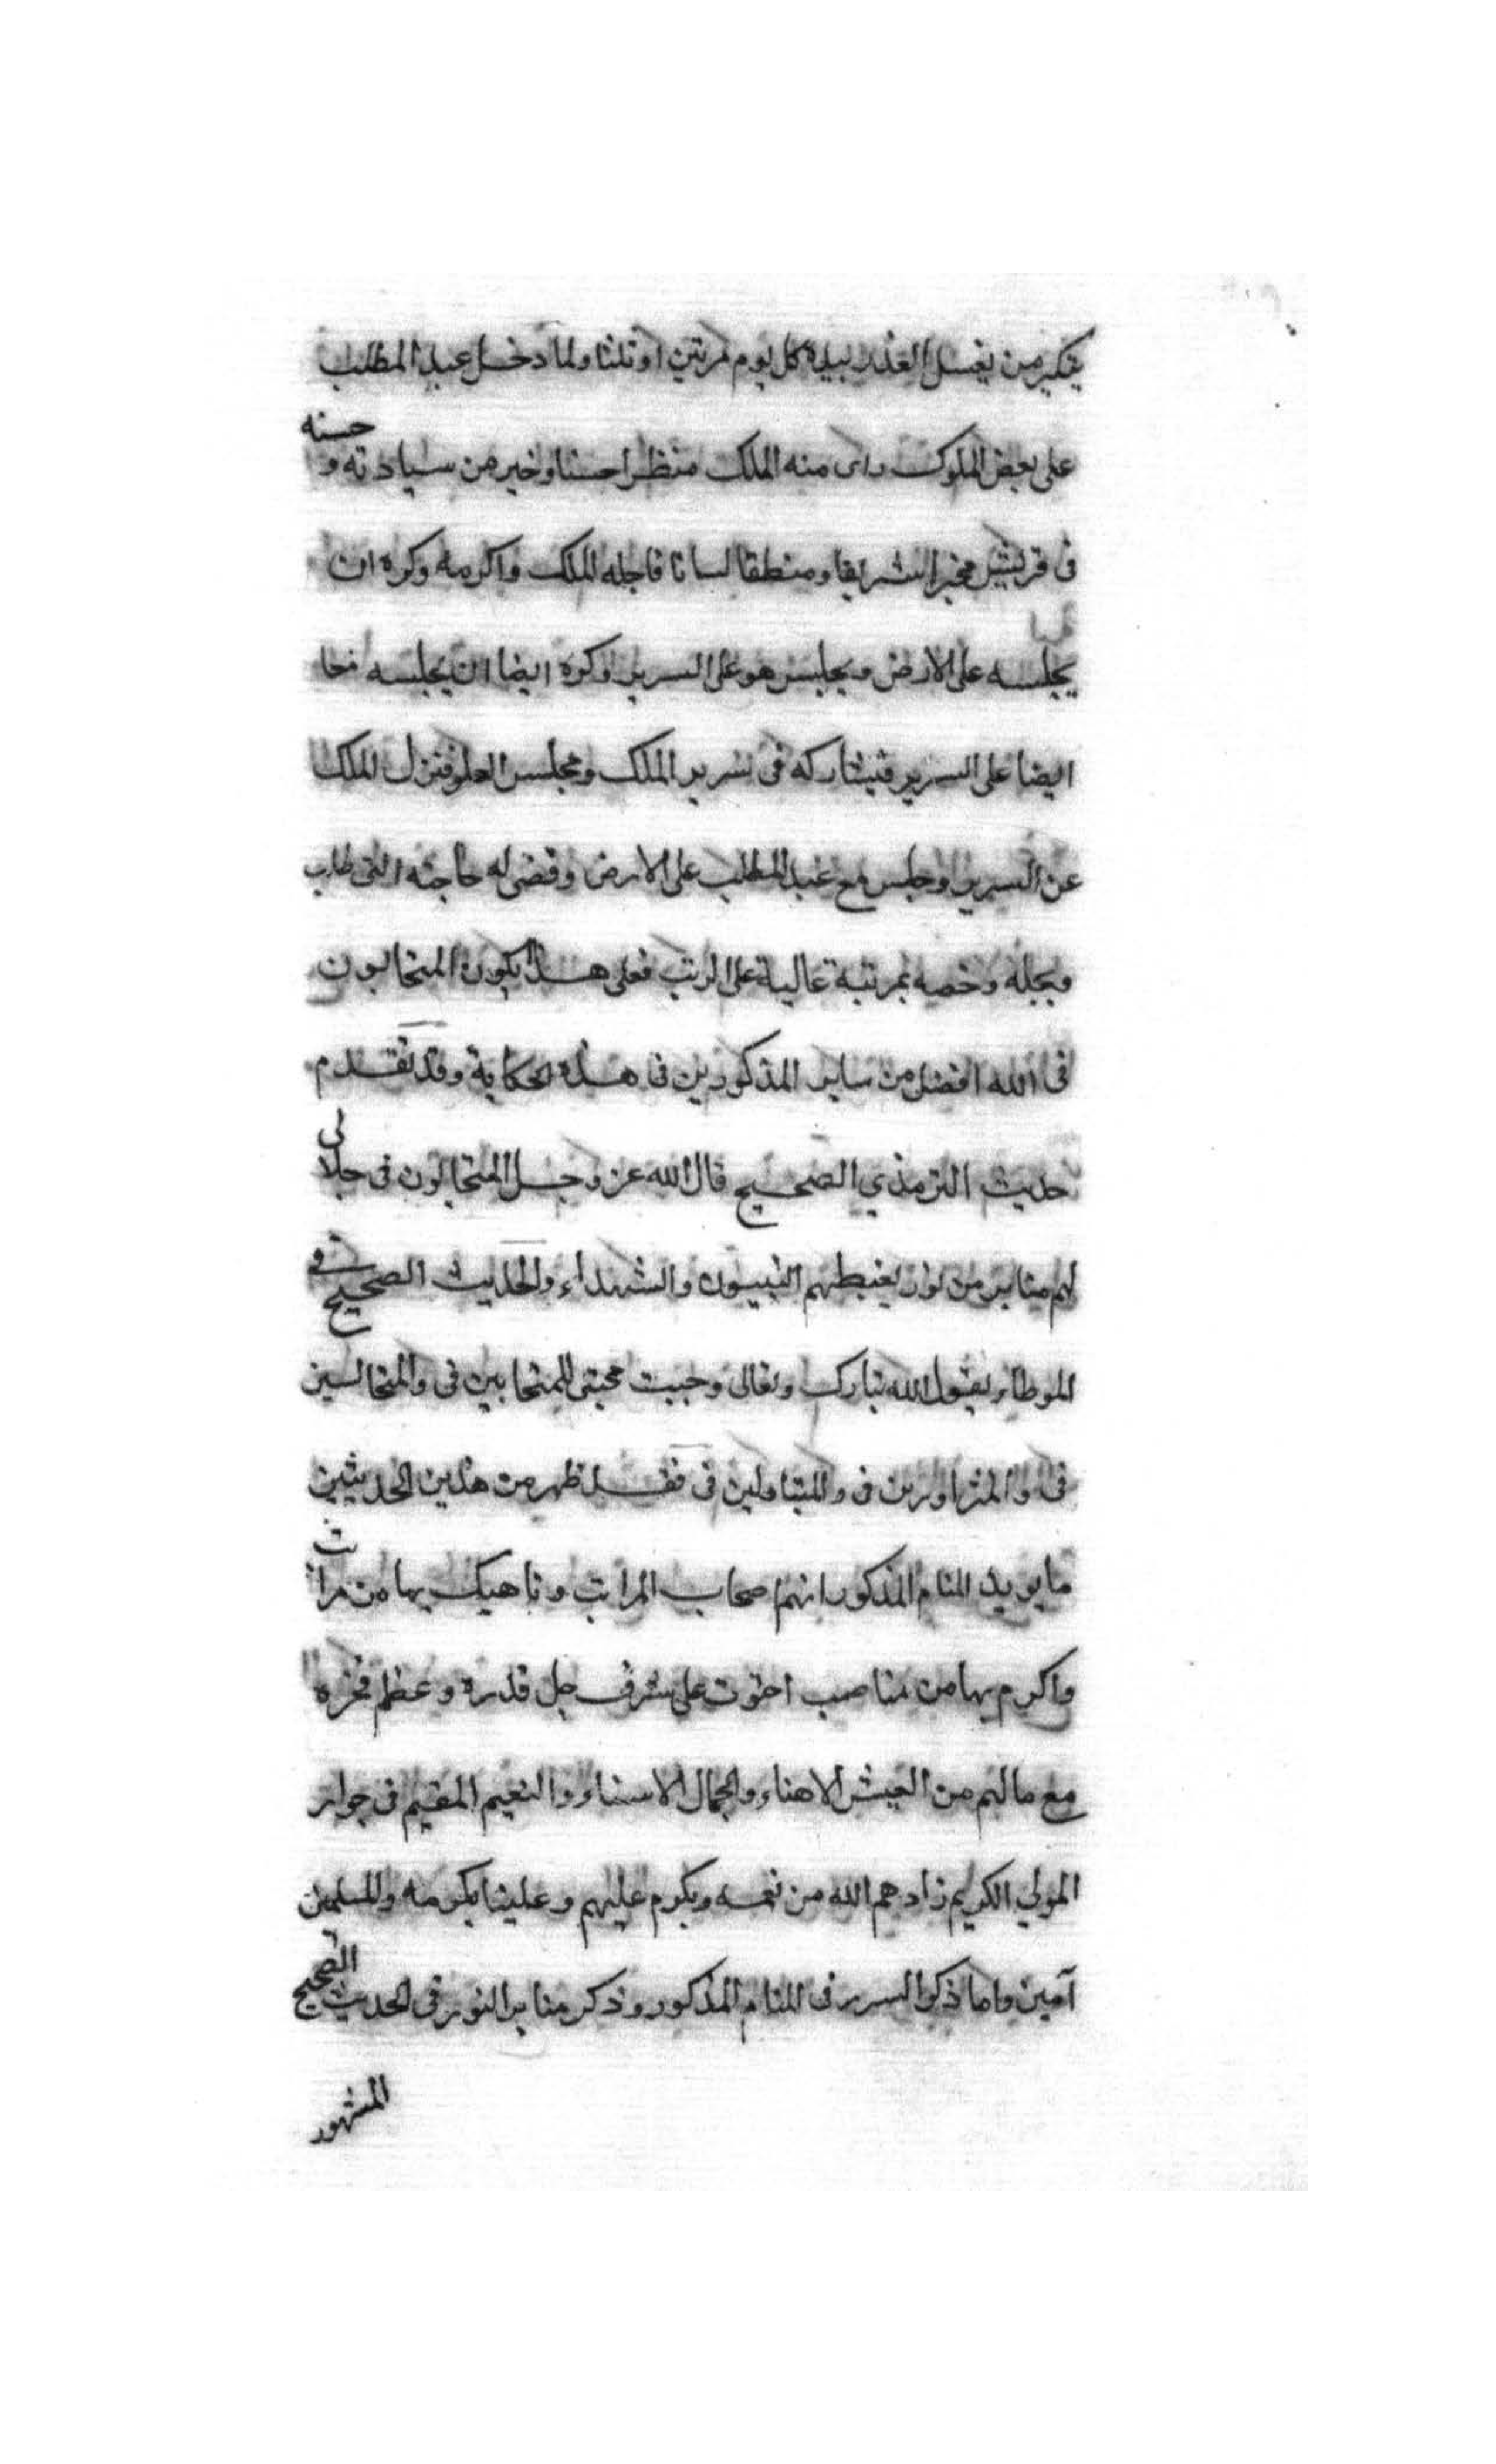 يتكبر من يغسل العذر بيده كل يوم مرتين او ثلثا ولما دخل عبد المطلب
على بعض الملوك راى منه الملك منظرا حسنا وخير من سيادته و حسنه
فى قريش مخبرا شريفا ومنطقا لسانا فاجله الملك واكرمه وكره ان
يجلسه على الارض ويجلس هو على السرير وكره ايضا ان يجلسه
ايضا على السرير فيشاركه فى سرير الملك ومجلس العلو فنزل الملك
عن السرير وجلس مع عبد المطلب على الارض وقضى له حاجته التى طلب
وبجله وخصه بمرتبة عالية على الرتب فعلى هذا يكون المتحابون
فى الله افضل من ساير المذكورين فى هذه الحكاية وقد تقدم
حديث الترمذي الصحيح قال الله عز وجل المتحابون فى جلالى
لهم منابر من نور يغبطهم النبيون والشهداء والحديث الصحيح فى
الموطاء يقول الله تبارك وتعالى وجبت محبتى للمتحابين فى والمتجالسين
فى والمتزاورين فى والمتباذلين فى فقد ظهر من هذين الحديثين
ما يويد المنام المذكور انهم اصحاب المراتب وناهيك بها من مراتب
واكرم بها من مناصب احتوت على شرف جل قدره وعظم فخره
مع مالهم من العيش الاهناء والجمال الاسناء والنعيم المقيم فى جوار
المولي الكريم زادهم الله من نعمه وبكرم عليهم وعلينا بكرمه وللمسلمين
آمين واما ذكر السرر فى المنام المذكور وذكر منابر النور فى الحديث الصحيح
المشهور